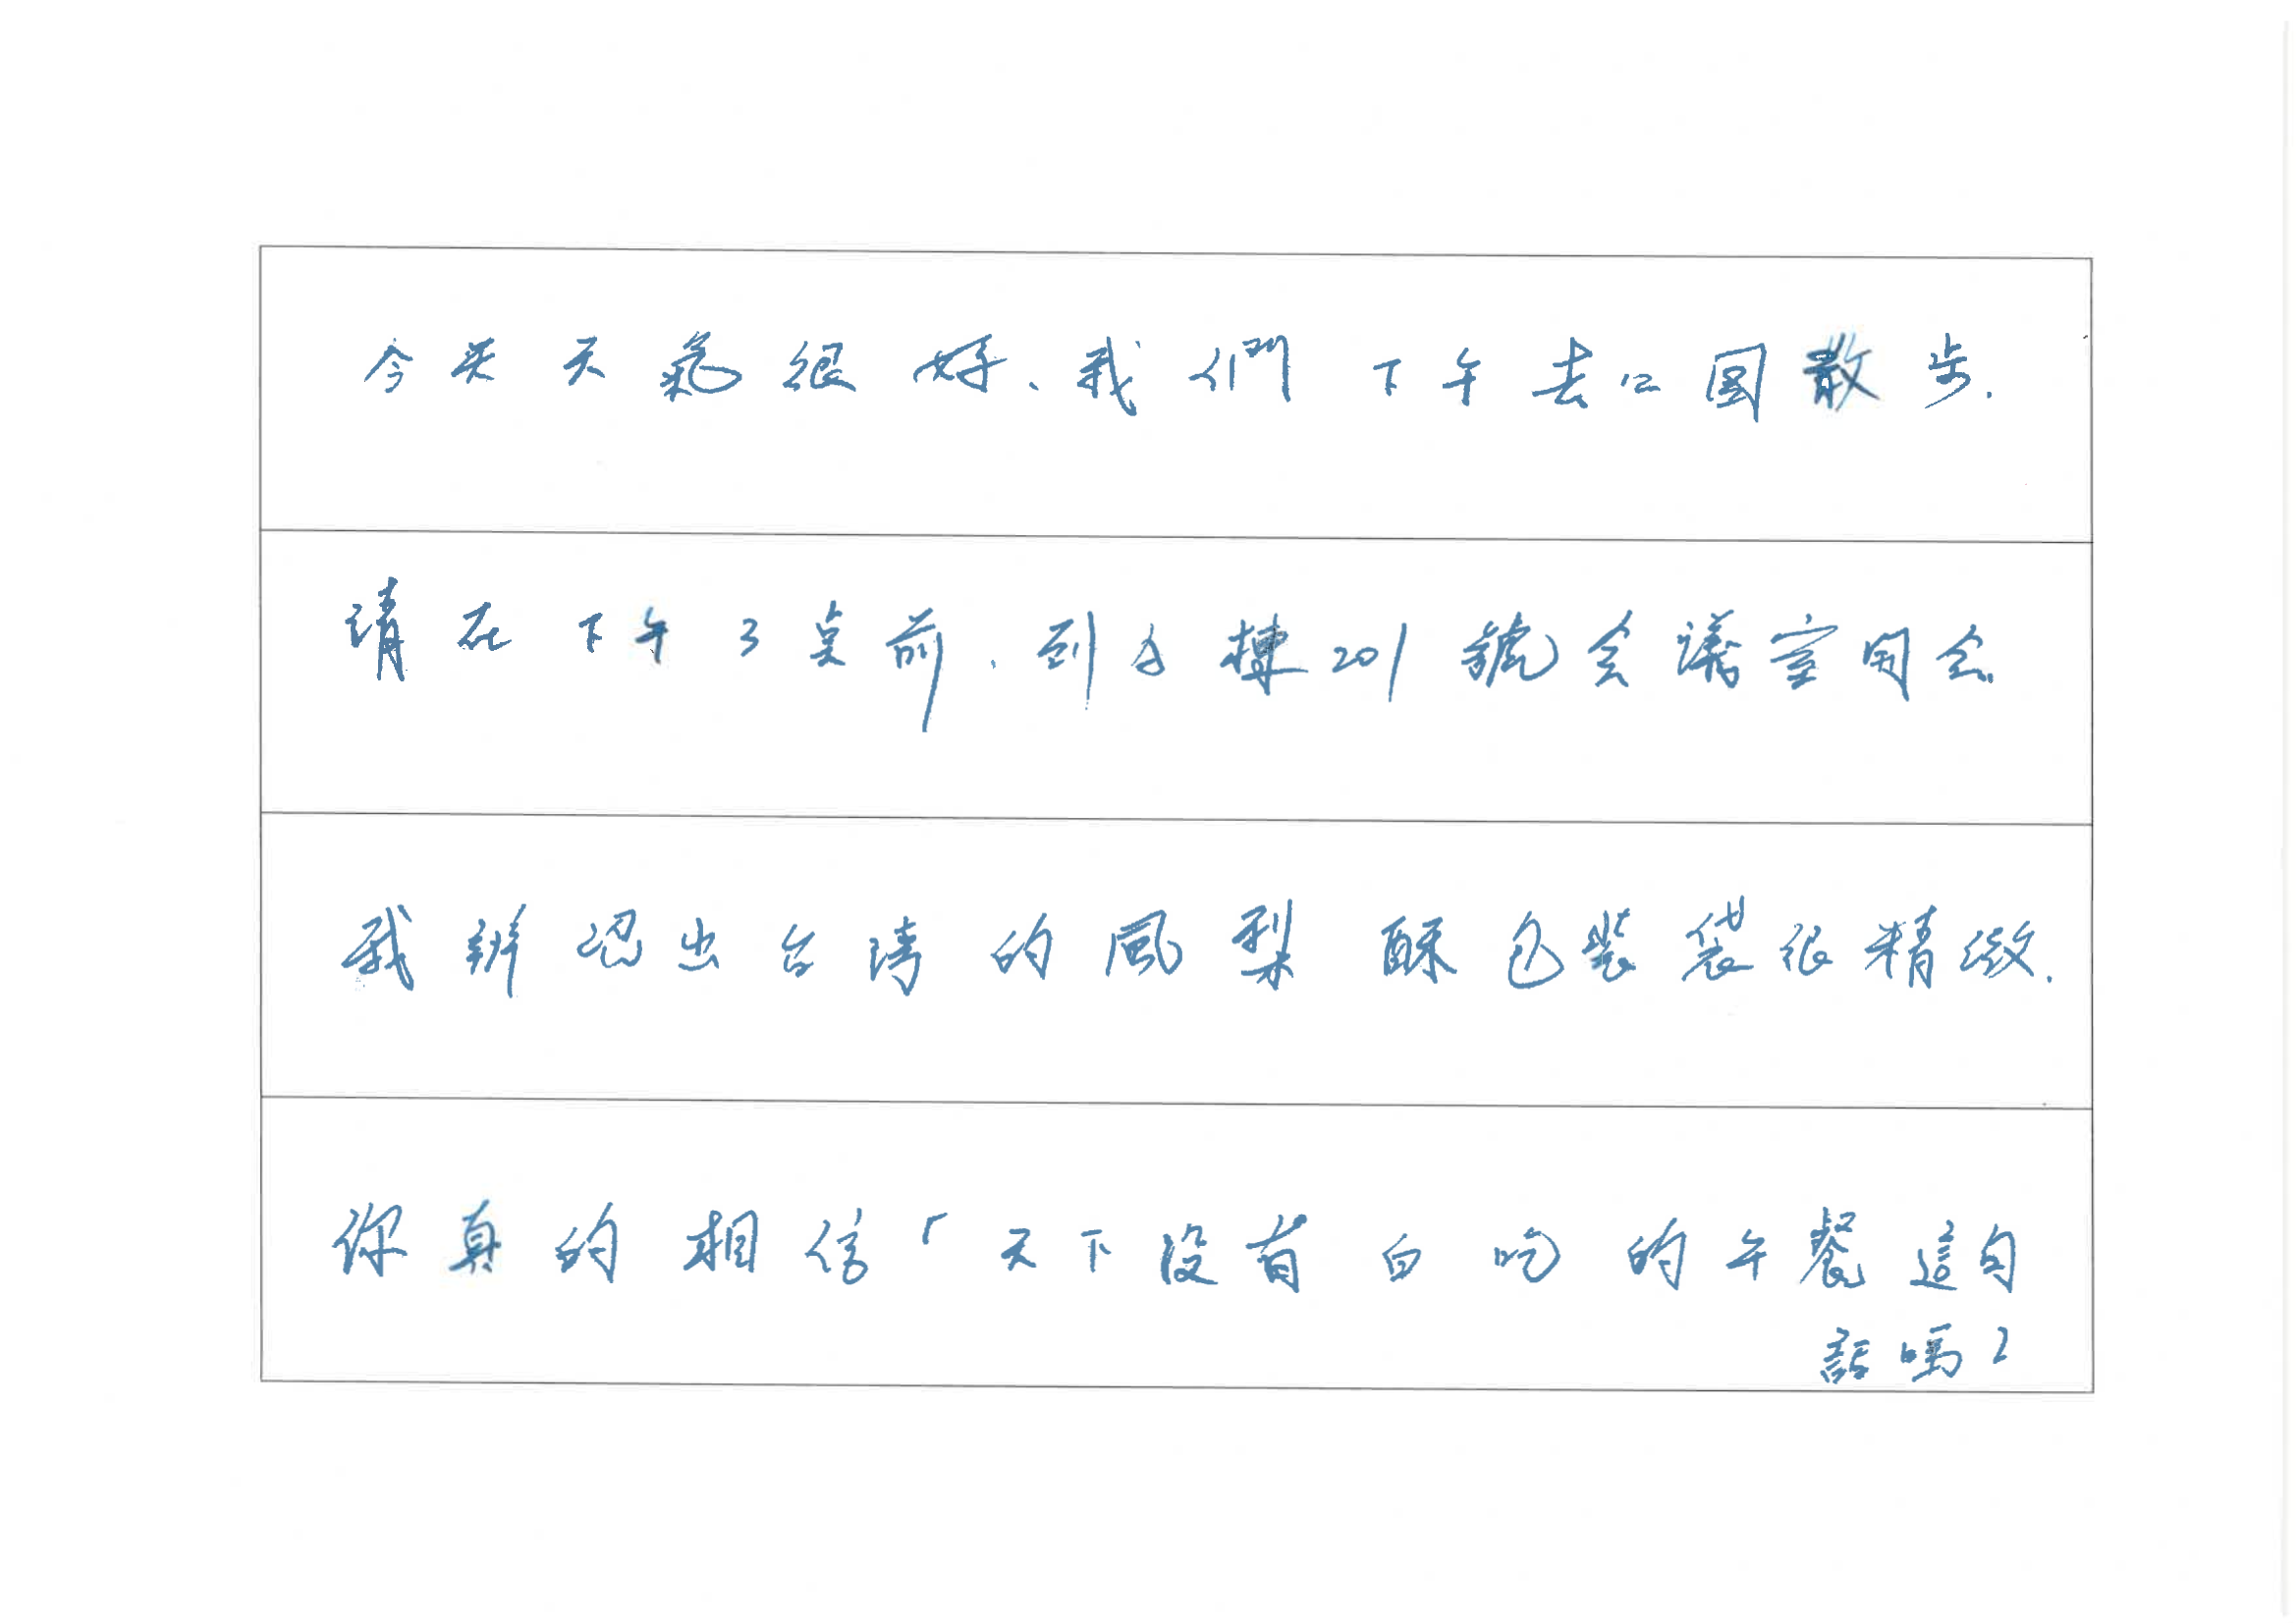 今天天氣很好、我們下午去公園散步.
請在下午3点前、到 棟201號会議室開会.
我辨認出台湾的鳳梨酥包裝袋很精緻.
你真的相信「天下沒有白吃的午餐這句
話嗎?